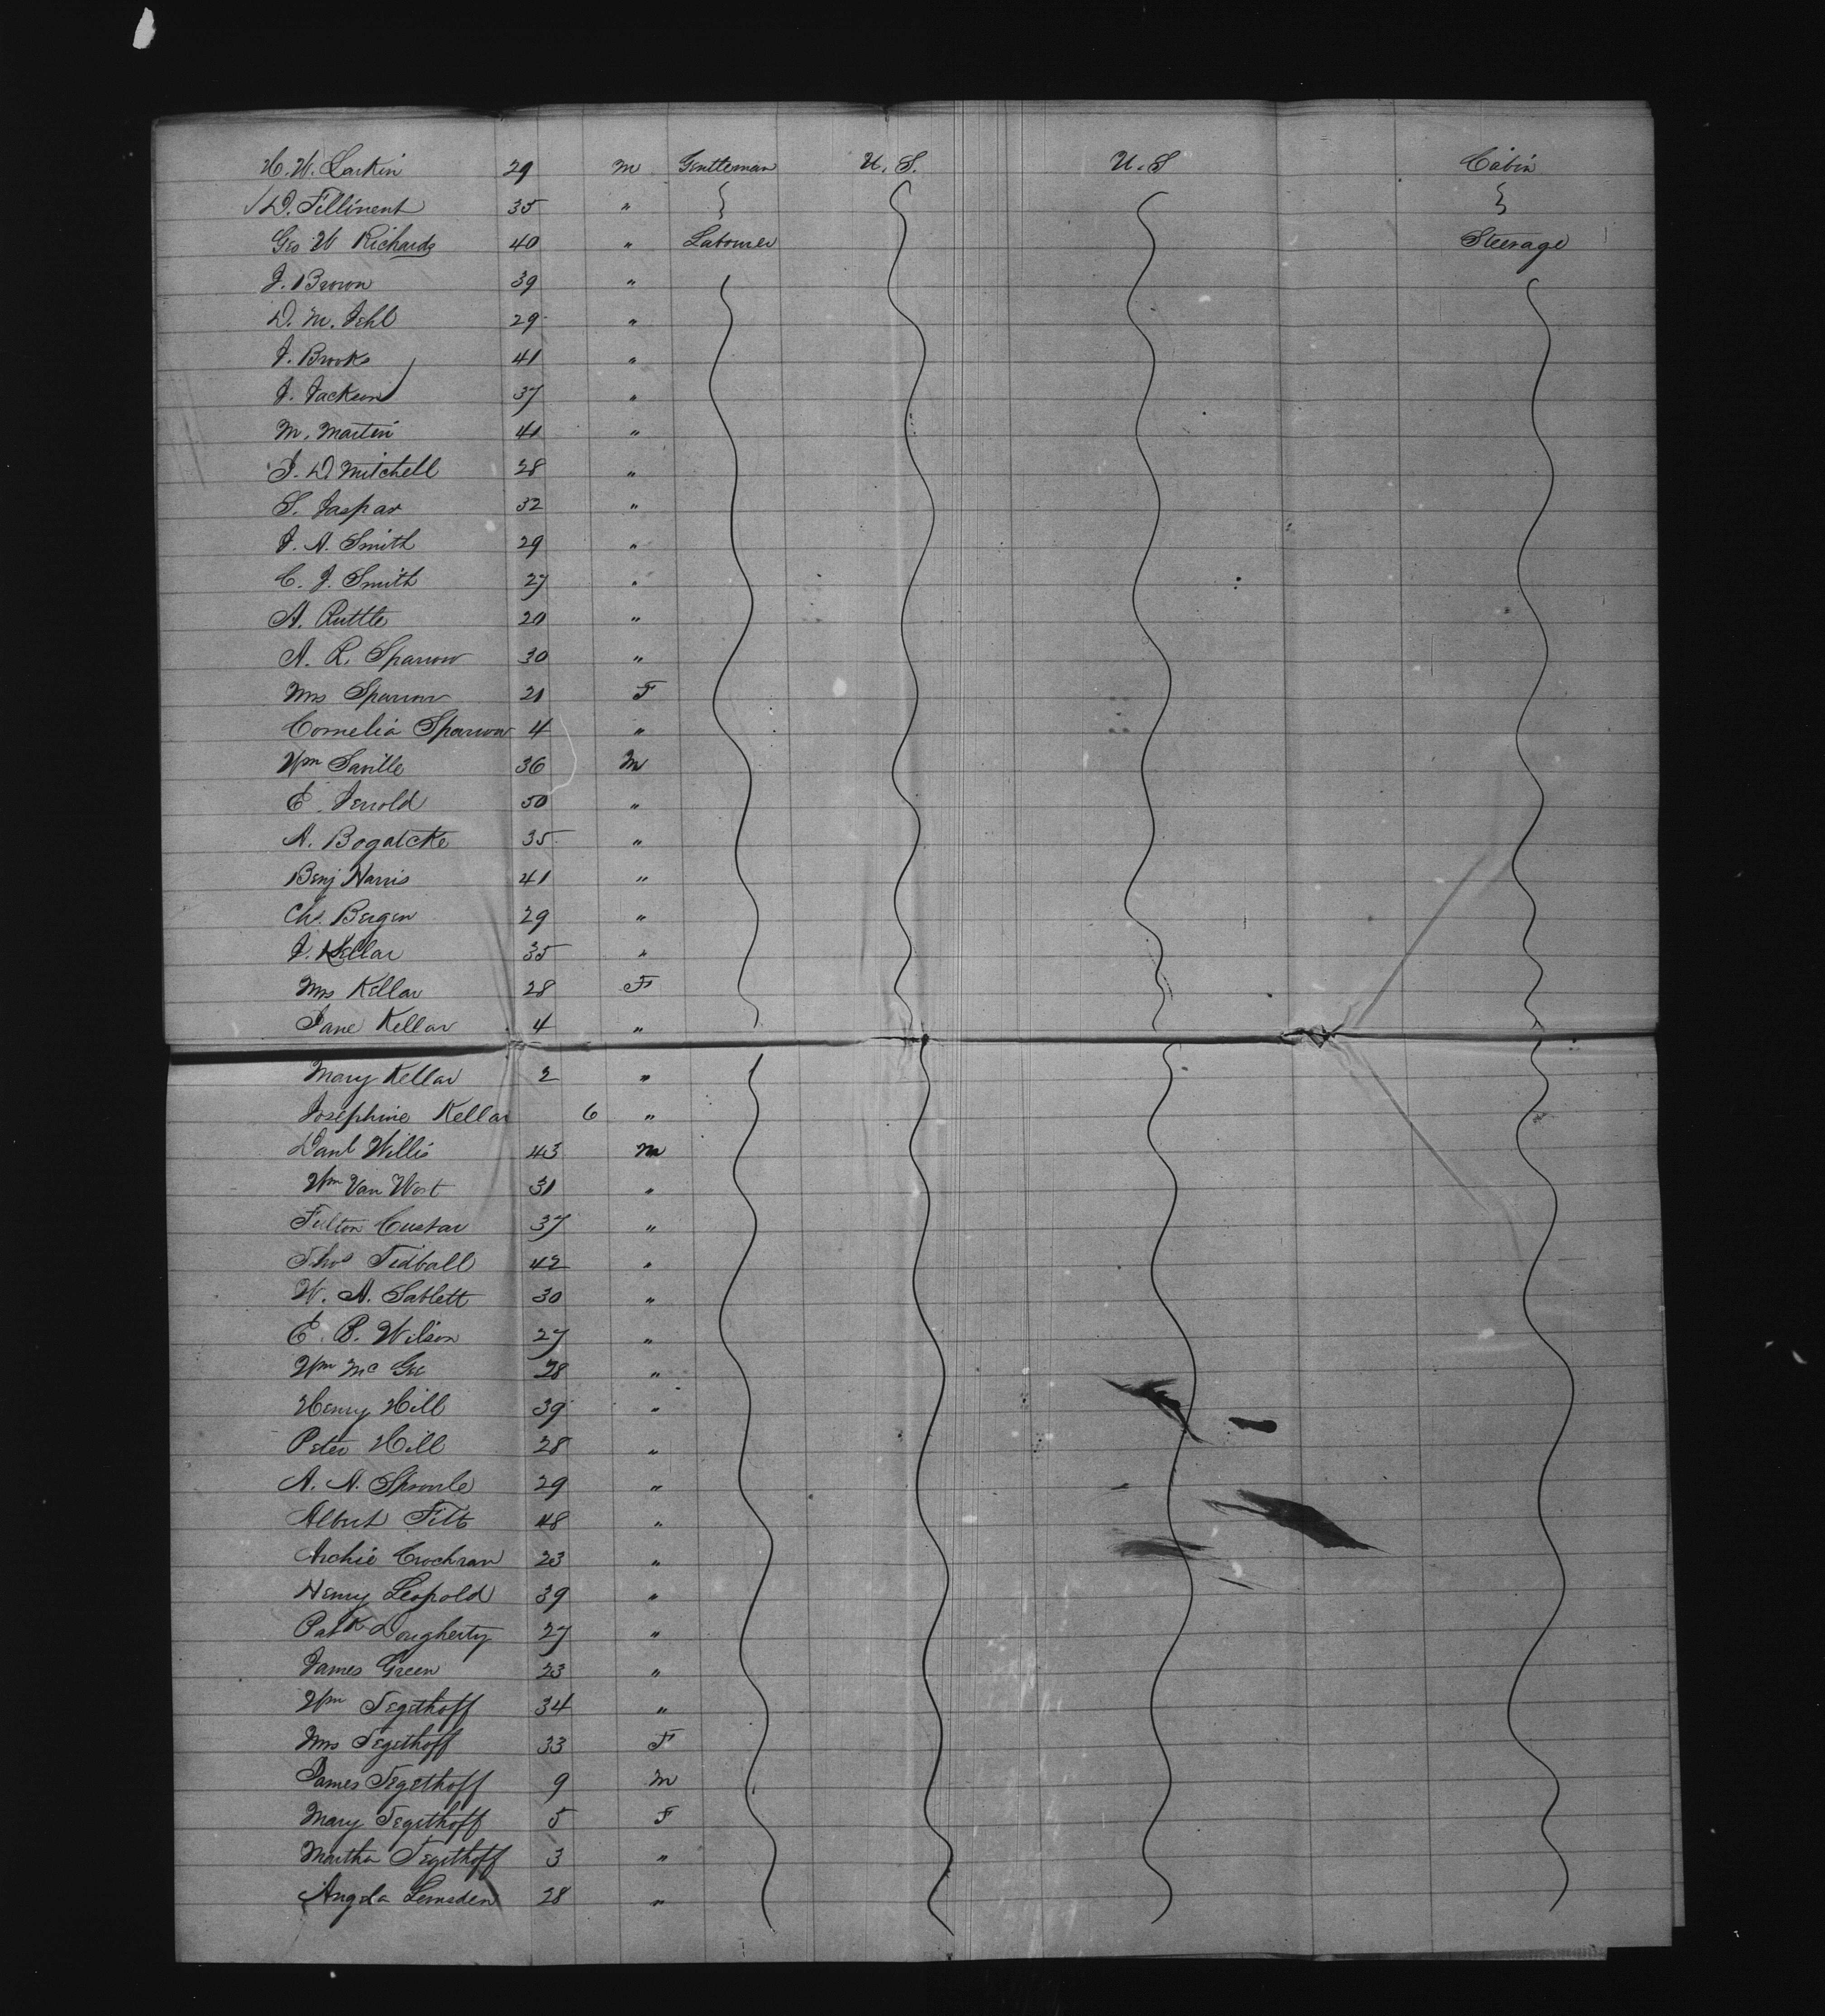 H. W. Larkin 29 m Gentleman U. S. U. S Cabin
D. Tillinent 35 "
Geo W Richards 40 " Labourer Steerage
J. Brown 39 "
D. M. Jehl 29 "
J. Brooks 41 "
J. Jackson 37 "
M. Martin 41 "
J. D. Mitchell 28 "
S. Jaspar 32 "
J. A. Smith 29 "
C. J. Smith 27 "
A. Ruttle 20 "
A. R. Sparrow 30 "
Mrs Sparrow 21 F
Cornelia Sparrow 4 "
Wm Saville 36 M
E. Jerrold 50 "
A. Bogatcke 35 "
Benj Harris 41 "
Chs. Bergen 29 "
J. Kellar 35 "
Mrs Kellar 28 F
Jane Kellar 4 "
Mary Kellar 2 "
Josephine Kellar 6 "
Danl Willis 43 M
Wm Van West 31 "
Fulton Custar 37 "
Thos Tidball 42 "
W. A. Sablett 30 "
E. B. Wilson 27 "
Wm McGee 28 "
Henry Hill 39 "
Peter Hill 28 "
A. A. Sproule 29 "
Albert Filt 48 "
Archie Crochran 23 "
Henry Leopold 39 "
Patk Dougherty 27 "
James Green 23 "
Wm Tegethoff 34 "
Mrs Tegethoff 33 F
James Tegethoff 9 M
Mary Tegethoff 5 F
Martha Tegethoff 3 "
Angela Lumsden 28 "